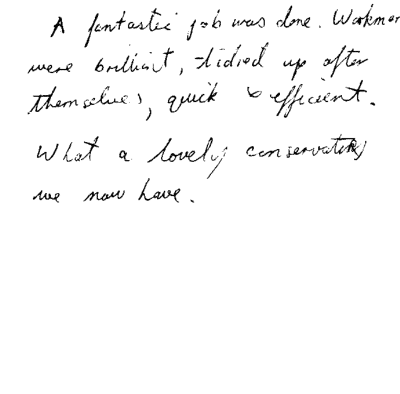 A fantastic job was done. Workmen
were brilliant, tidied up after
themselves, quick & efficient.
What a lovely conservatory
we now have.